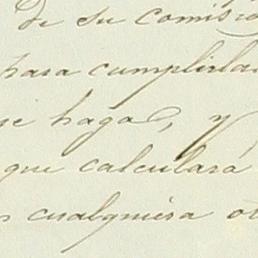 de su comisió
para cumplirla
se haga, y
que calculará
cualquiera ot